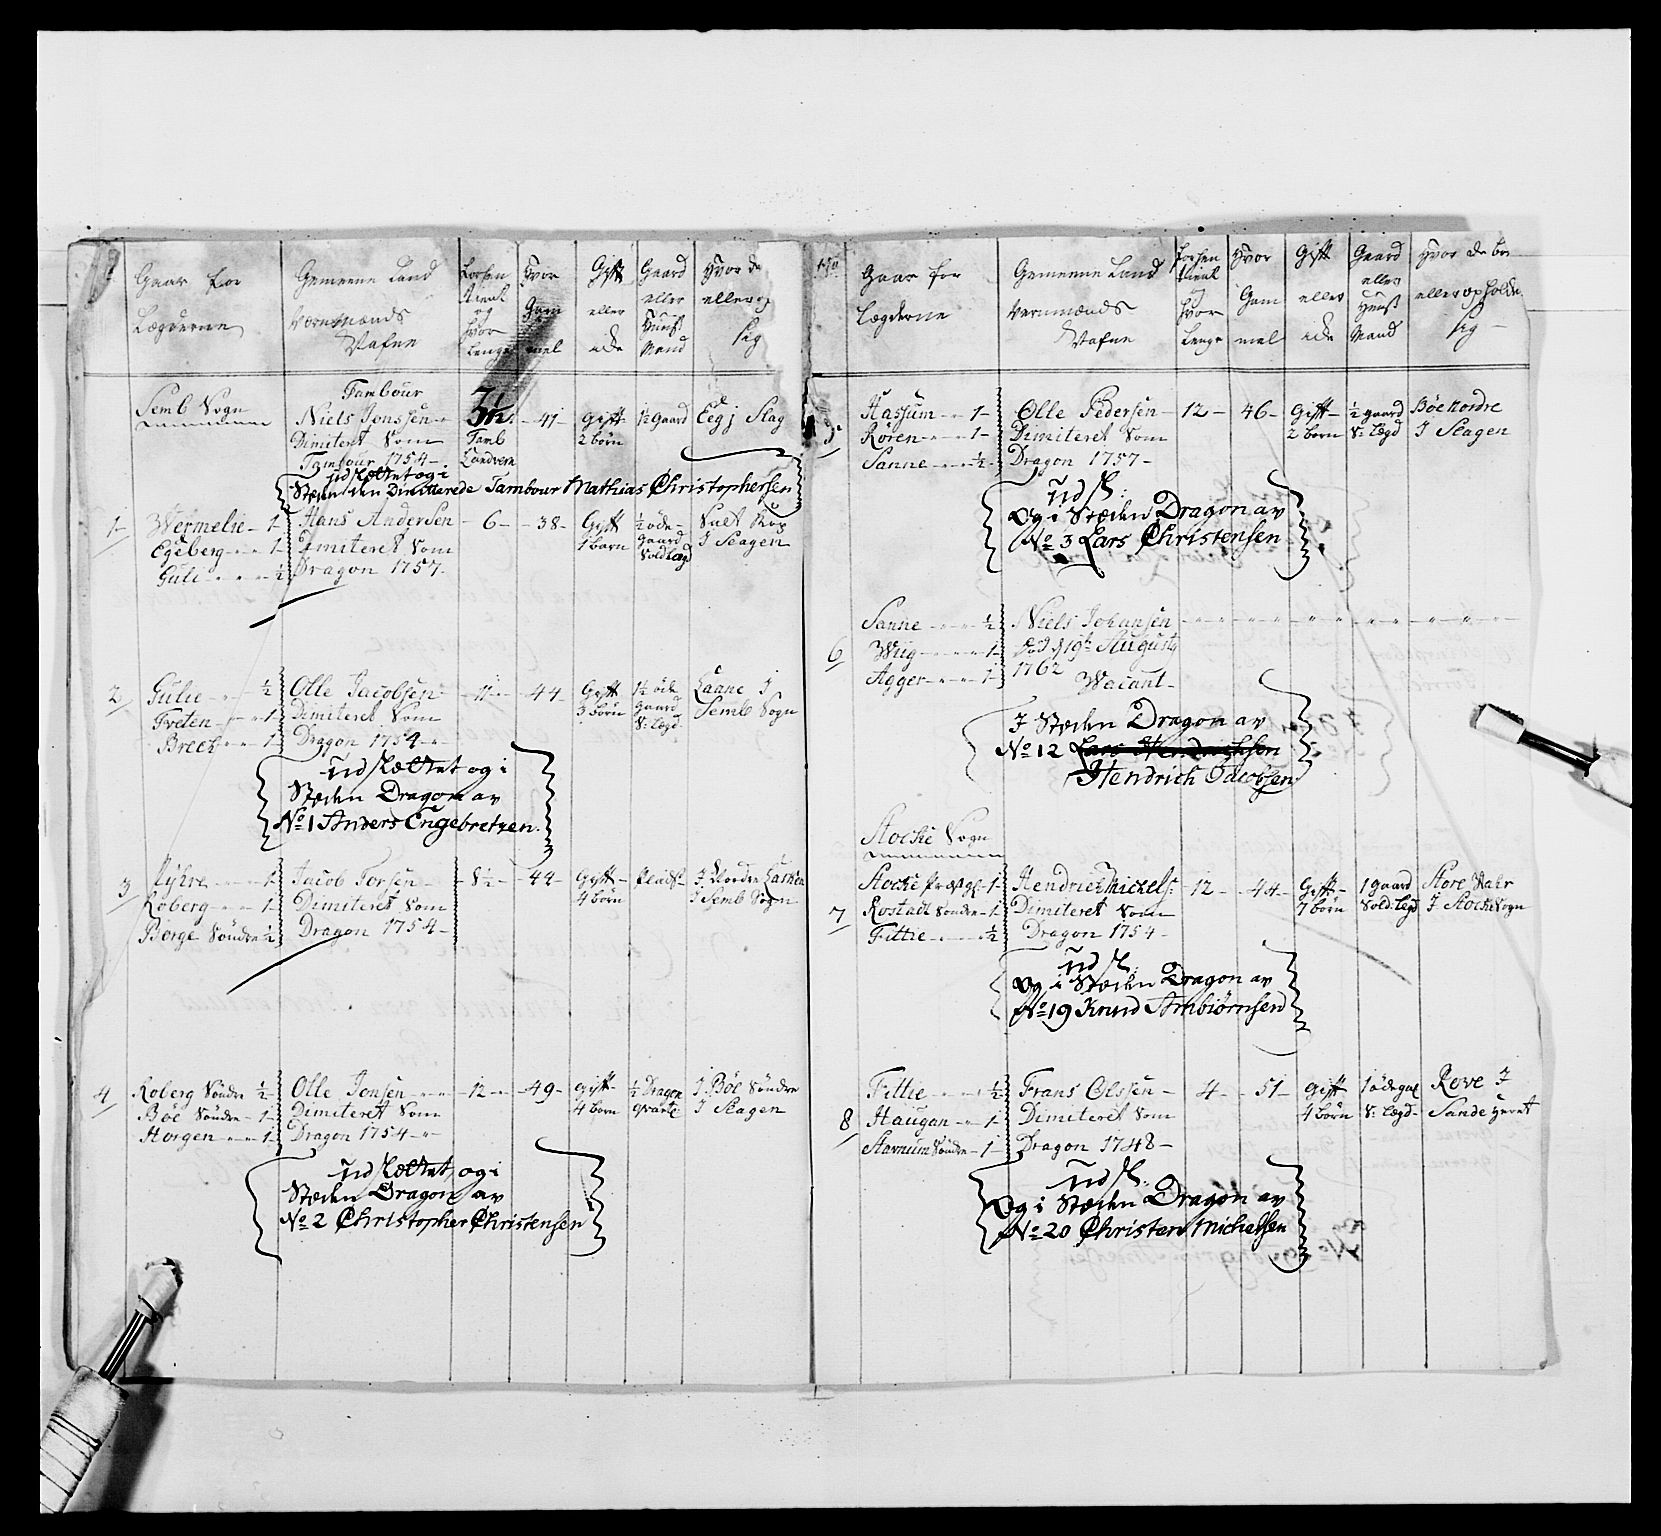 Gaar for
Lægderne
Gemeene Land
Vernmænds
Nafne
Forhen
tient
og
hvor
Lenge
Hvor
Gam
mel
Gift
eller
ide
Gaard
eller
Huus
Mand
Hvor de
eller op
sig
Semb Sogn
Tambour
Niels Jonssen
Dimitert Som
Tambour 1754
Tamb
Landvern
41
Gift
2 børn
1/2 Gaard
Eegj Slag
udslettet og i
Stæden den Dimitterede Tambour Mathias Christophersen
1
Wermelie 1
Egeberg 1
Guli 1/2
Hans Andersen
Dimiteret Som
Dragon 1757
6
38
Gift
1 barn
1/2 øde
gaard
Soldlægd
I Seagen
2
Gulie 1/2
Tveten 1
Breck 1
Olle Jacobsen
Dimiteret Som
Dragon 1754
11
44
Gift
3 børn
1/2 øde
Gaard
S: Lægd
Laane I
Semb Sogn
udslettet og i
Stæden Dragon av
No 1 Anders Engebretsen
3
Røberg 1
Borge Søndre 1/2
Jacob Torsen
Dimiteret Som
Dragon 1754
8 1/2
44
Gift
4 børn
Plads
I Semb Sogn
4
Roberg Søndre 1/2
Bøe Søndre 1
Horgen 1
Olle Jonsen
Dimiteret Som
Dragon 1754
12
49
Gift
4 børn
1/2 Dragon
qvarte
I Bøe Søndre
I Seagen
udslettet og i
Stæden Dragon av
No 2 Christopher Christensen
No
Gaar for
Lægderne
Gemeene Land
Vernmænds
Nafne
Forhen
tient
og
hvor
Lenge
Hvor
Gam
mel
Gift
eller
ide
Gaard
eller
Huus
Mand
Hvor de boe
eller opholde
sig
5
Hassum 1
Røren 1
Sanne 1/2
Olle Pedersen
Dimiteret Som
Dragon 1757
12
46
Gift
2 børn
1/2 gaard
S: Lægd
Bøe Nordre
I Seagen
Udsl:
Og i Stæden Dragon av
No 3 Lars Christensen
6
Sanne 1/2
Wug 1
Agger 1
Niels Johansen
død d 19de Augusty
1762
Wacant
I Stæden Dragon av
No 12 Lars Hendrichsen
Hendrich Jacobsen
Stocke Sogn
7
Stocke Præstgl 1
Rostad Søndre 1
Fittie 1/2
Hendrich Mickels:
Dimiteret Som
Dragon 1754
12
44
Gift
7 børn
1 gaard
Sold: Lægd
Store Hahr
I Stocke Sogn
Udsl:
Og i Stæden Dragon av
No 19 Knud Arnbiørnsen
8
Fittie 1/2
Haugan 1
Starnum Søndre 1
Frans Olssen
Dimiteret Som
Dragon 1748
4
51
Gift
4 børn
1 ødegrd
S: Lægd
Rove I
Sande Herret
Udsl:
Og i Stæden Dragon av
No 20 Christen Michelsen